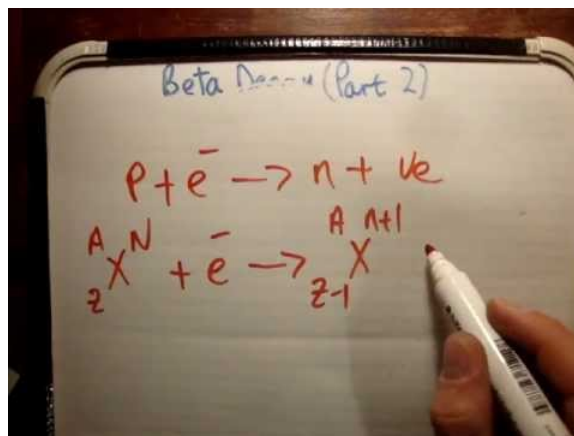 Beta (Part 2)
p + e⁻ → n + νe
ᴬ_Z X ᴺ + e⁻ → ᴬ_Z-1 X ⁿ⁺¹